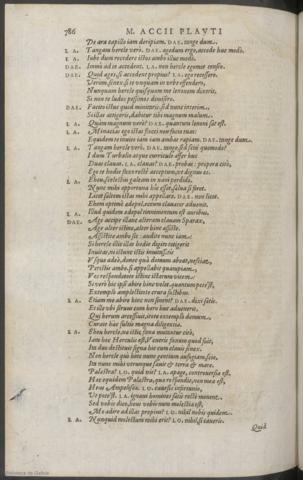 786 M. ACCII PLAVTI
De ara capillo iam deripiam. DAE. tange dum.
LA. Tangam hercle verò. DAE. agedum ergo, accede huc modò.
LA. Iube dum recedere istos ambo illuc modò.
DAE. Immò ad te accedent. LA. non hercle equidem censeo.
DAE. Quid ages, si accedent propius? LA. ego recessero.
Verùm, senex, si te vnquam in vrbe offendero,
Nunquam hercle quisquam me lenonem dixerit,
Si non te ludos pessimos dimisero.
DAE. Facito istuc quod minitaris. sed nunc interim,
Si illas attigeris, dabitur tibi magnum malum.
LA. Quàm magnum verò? DAE. quantum lenoni sat est.
LA. Minacias ego istas flocci non facio tuas:
Equidem te inuito iam iam ambas rapiam. DAE. tange dum.
LA. Tangam hercle verò. DAE. tange, sed scin quomodo?
I dum Turbalio atque curriculo affer huc
Duas clauas. LA. clauas? DAE. probas: propera citò.
Ego te hodie faxo rectè acceptum, vt dignus es.
LA. Eheu, scelestus galeam in naui perdidi.
Nunc mihi opportuna hîc esset, salua si foret.
Licet saltem istas mihi appellare. DAE. non licet.
Ehem optumè edepol, eccum clauator aduenit.
LA. Illud quidem edepol tinnimentum est auribus.
DAE. Age accipe illanc alteram clauam Sparax,
Age alter istinc, alter hinc assiste.
Assistite ambo sic: audite nunc iam.
Si hercle illic illas hodie digito tetigerit
Inuitas, ni istunc istis
Vsque adeò, donec quà domum abeat, nesciat,
Peristis ambo. si appellabit quampiam,
Vos respondetote istinc istarum vicem.
Sin ipse abire hinc volet, quantum potest,
Extemplo amplectitote crura fustibus.
LA. Etiam me abire hinc non sinent? DAE. dixi satis.
Et vbi ille seruus cum hero huc aduenerit,
Qui herum arcessiuit, itote extemplo domum.
Curate haec sultis magna diligentia.
LA. Eheu hercle, nae istic fana mutantur citò,
Iam hoc Herculi est, Veneris fanum quod fuit,
Ita duo destituit signa hîc cum clauis senex.
Non hercle quò hinc nunc gentium aufugiam, scio,
Ita nunc mihi vtrunque saeuit & terra & mare.
Palaestra? LO. quid vis? LA. apage, controuersia est,
Haec equidem Palaestra, quae respondit, non mea est,
Heus Ampelisca. LO. caueas infortunio,
Vt potest. LA. ignaui homines satis rectè monent.
Sed vobis dico, heus vobis num molestia est,
Me adire ad illas propius? LO. nihil nobis quidem.
LA. Nunquid molestum mihi erit? LO. nihil, si caueris.
Quid